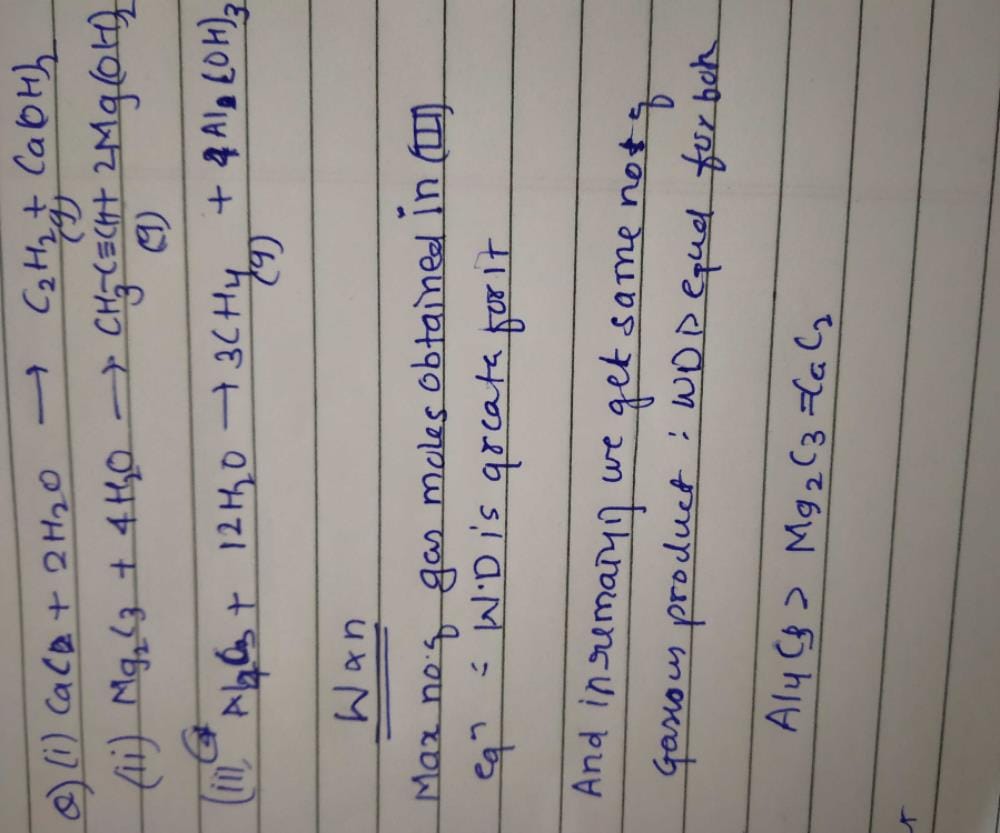 Q) (i) CaC2 + 2H2O → C2H2 + Ca(OH)2
(g)
(ii) Mg2C3 + 4H2O → CH3-C≡CH + 2Mg(OH)2
(g)
(iii) Al4C3 + 12H2O → 3CH4 + 4Al(OH)3
(g)
W ∝ n
Max no.of gas moles obtained in (III)
eqn ∴ W.D is greate for it
And in remaiyiy we get same no of
Gasous product ∴ WD is equal for boh
Al4C3 > Mg2C3 = CaC2